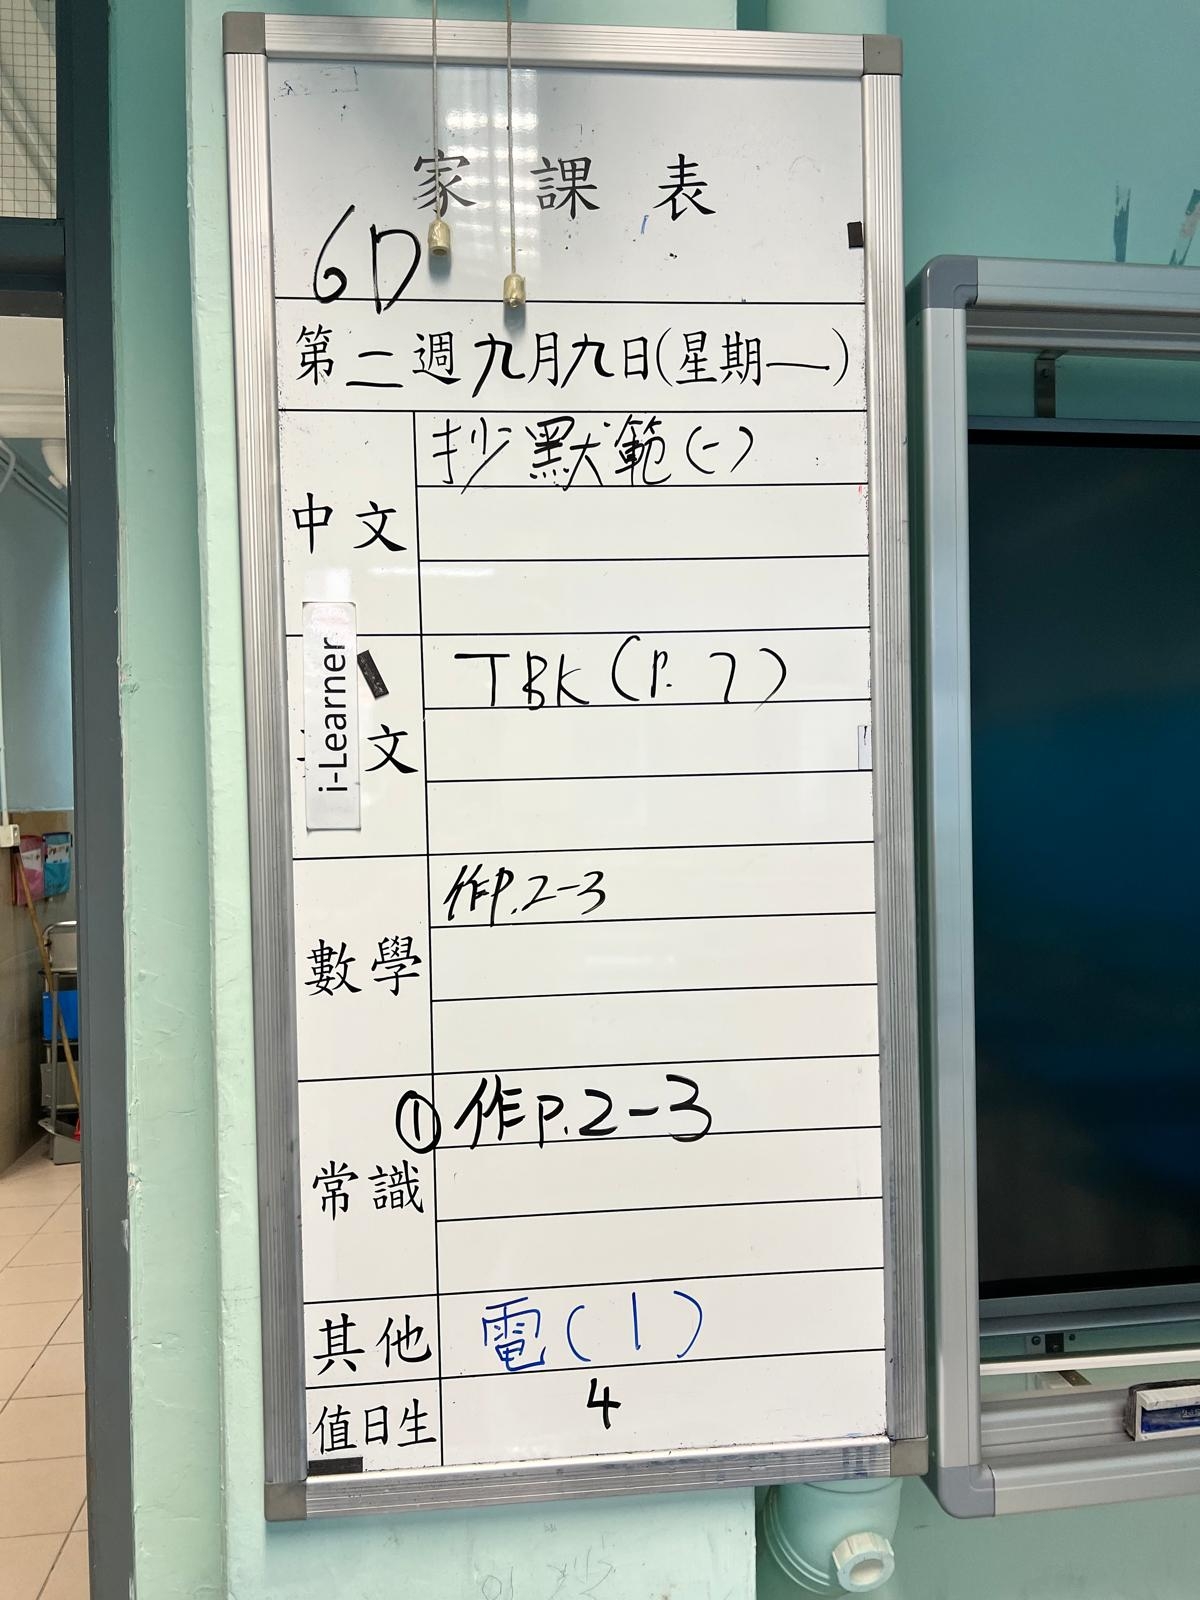 家課表
6D
第二週九月九日(星期一)
中文
抄默範(一)
i-Learner
文
TBK(P.7)
數學
作P.2-3
常識
①作P.2-3
其他
電(1)
值日生
4